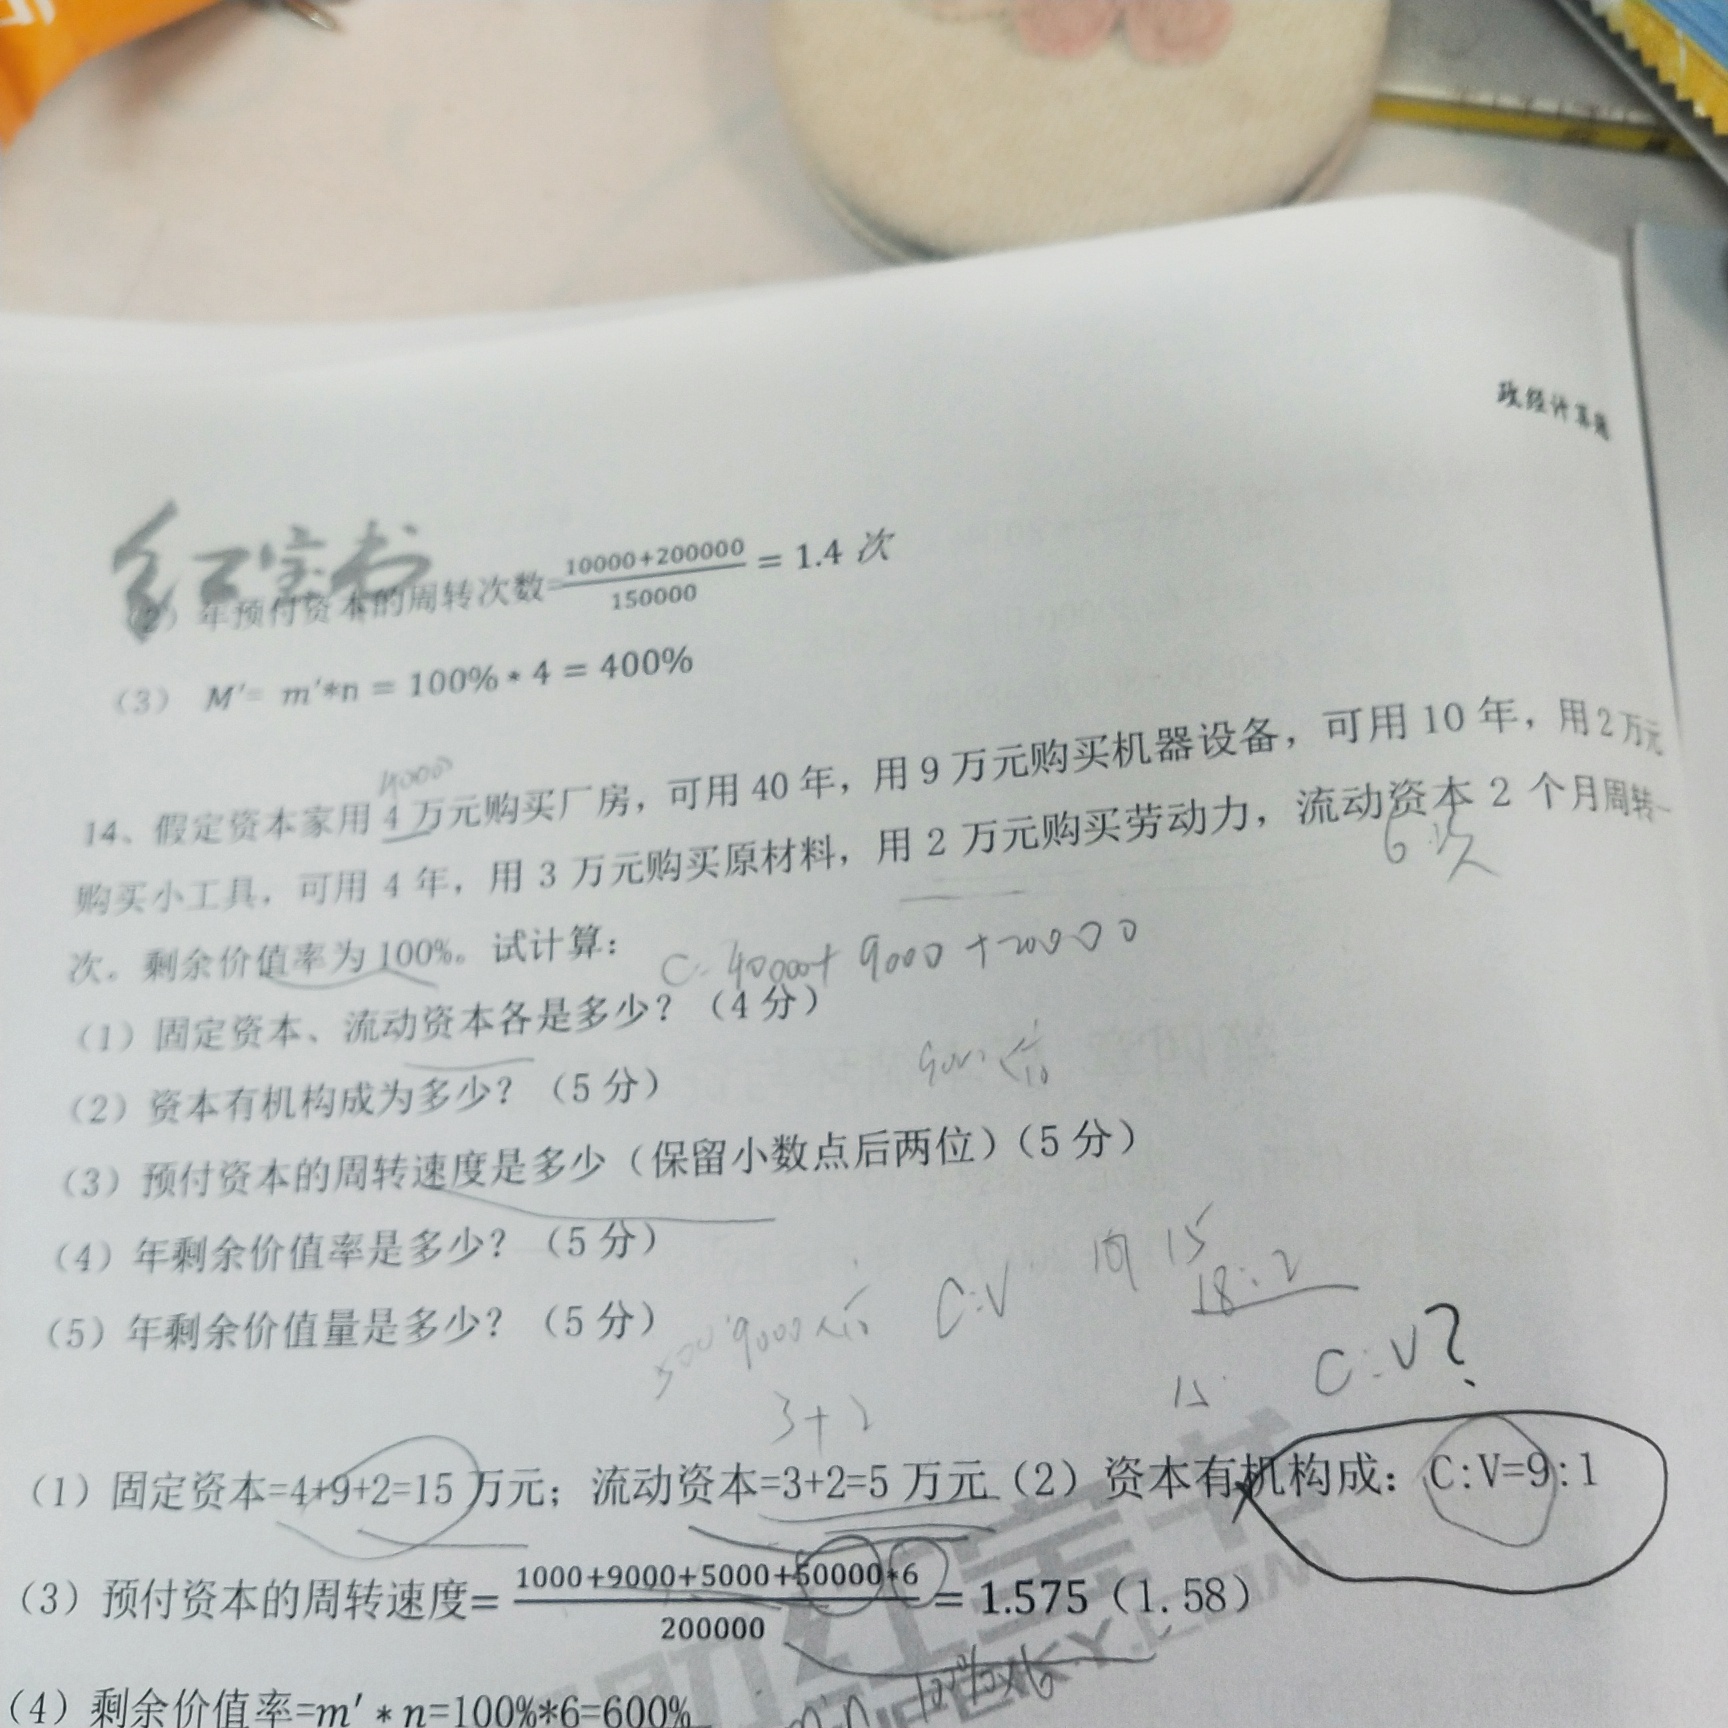 政经计算题
红宝书
(2) 年预付资本的周转次数=10000+200000/150000 = 1.4 次
(3) M'= m'*n = 100% * 4 = 400%
40000
14、假定资本家用 4 万元购买厂房，可用 40 年，用 9 万元购买机器设备，可用 10 年，用 2 万元
购买小工具，可用 4 年，用 3 万元购买原材料，用 2 万元购买劳动力，流动资本 2 个月周转一
6次
次。剩余价值率为 100%。试计算：
C 40000+ 9000 +20000
(1) 固定资本、流动资本各是多少？（4 分）
(2) 资本有机构成为多少？（5 分）
(3) 预付资本的周转速度是多少（保留小数点后两位）（5 分）
(4) 年剩余价值率是多少？（5 分）
C:V 15
18:2
(5) 年剩余价值量是多少？（5 分）
C:V?
3+2
15
(1) 固定资本=4+9+2=15 万元；流动资本=3+2=5 万元（2）资本有机构成：C:V=9:1
(3) 预付资本的周转速度= 1000+9000+5000+50000*6/200000 = 1.575（1.58）
100%×6
(4) 剩余价值率=m' * n=100%*6=600%